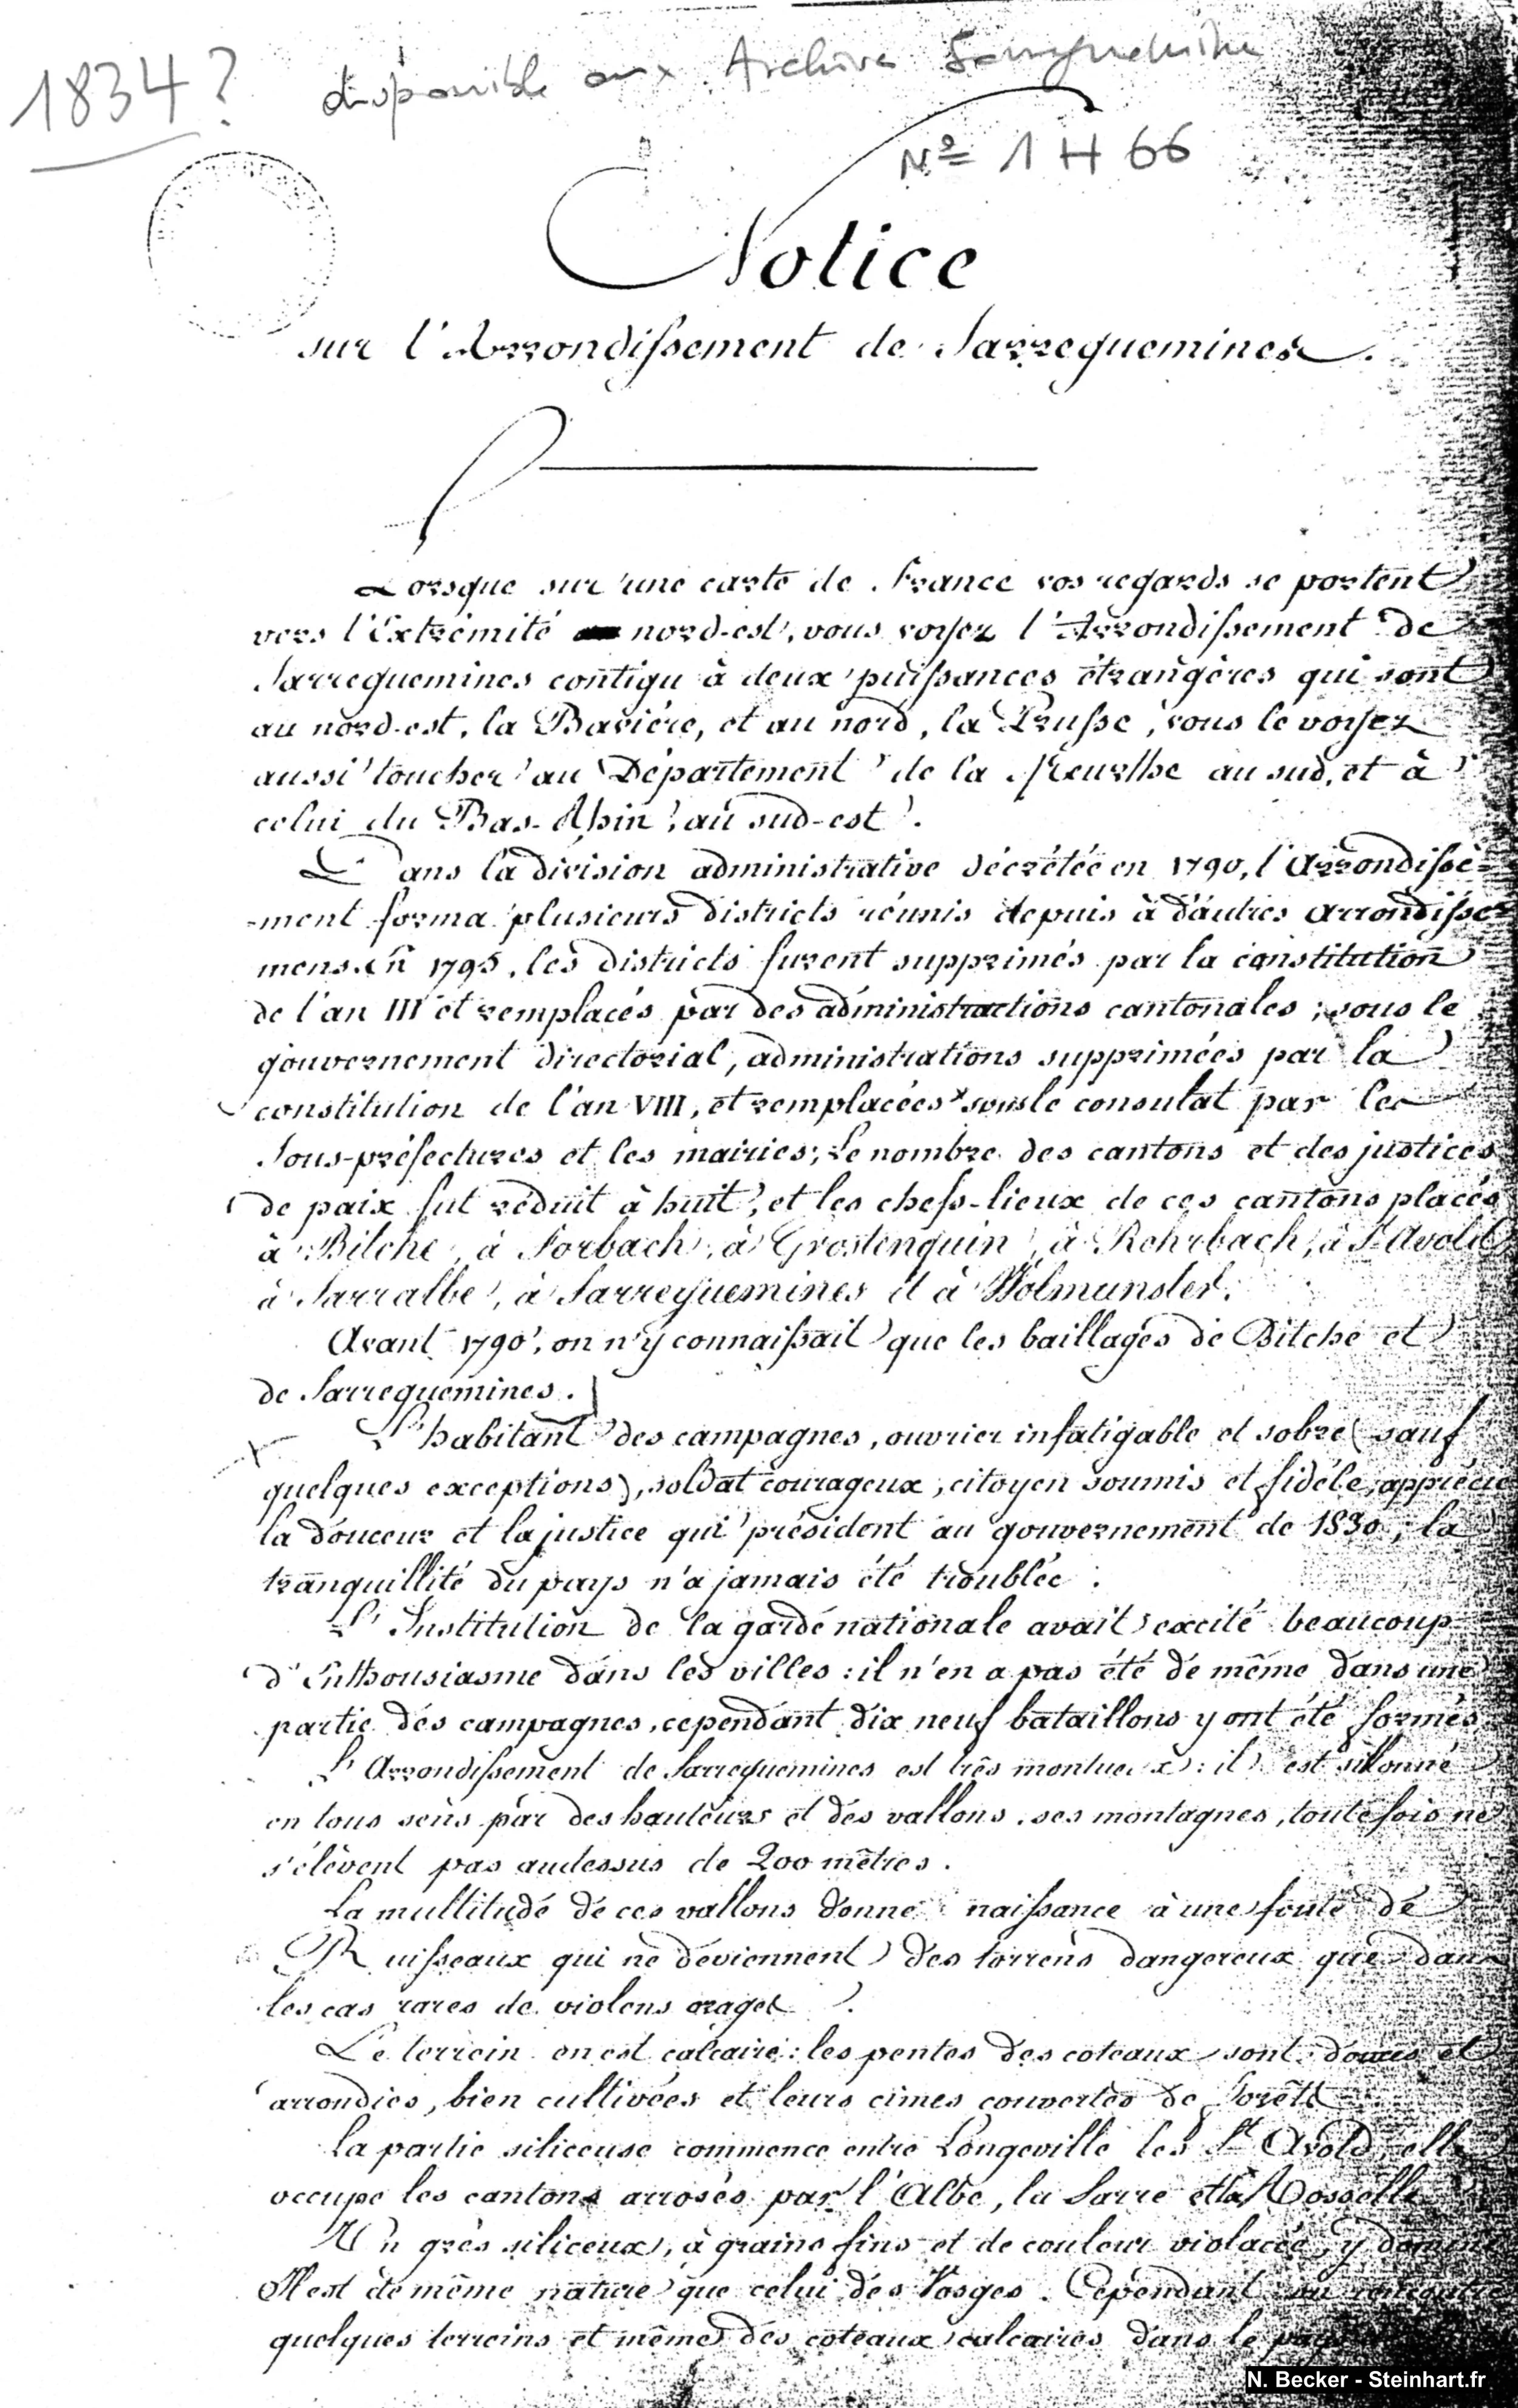 1834 ? disponible aux Archives Sarreguemines
Nº 1 H 66
Notice
sur l'Arrondissement de Sarreguemines.
Lorsque sur une carte de France vos regards se portent
vers l'Extrémité nord-est, vous voyez l'Arrondissement de
Sarreguemines contigu à deux puissances étrangères qui sont
au nord-est, la Bavière, et au nord, la Prusse, vous le voyez
aussi toucher au Département de la Meurthe au sud, et à
celui du Bas-Rhin, au sud-est.
Dans la division administrative décrétée en 1790, l'Arrondisse-
-ment forma plusieurs districts réunis depuis à d'autres arrondisse-
mens. En 1795, les districts furent supprimés par la constitution
de l'an III et remplacés par des administrations cantonales ; sous le
gouvernement directorial, administrations supprimées par la
constitution de l'an VIII, et remplacées sous le consulat par les
Sous-préfectures et les mairies ; Le nombre des cantons et des justices
de paix fut réduit à huit, et les chefs-lieux de ces cantons placés
à Bitche, à Forbach, à Grostenquin, à Rohrbach, à St Avold
à Sarralbe, à Sarreguemines et à Wolmunster.
Avant 1790, on n'y connaissait que les baillages de Bitche et
de Sarreguemines.
L'habitant des campagnes, ouvrier infatigable et sobre (sauf
quelques exceptions), soldat courageux, citoyen soumis et fidèle, apprécie
la douceur et la justice qui président au gouvernement de 1830 ; la
tranquillité du pays n'a jamais été troublée.
L'Institution de la garde nationale avait excité beaucoup
d'Enthousiasme dans les villes : il n'en a pas été de même dans une
partie des campagnes, cependant dix neuf bataillons y ont été formés
L'Arrondissement de Sarreguemines est très montueux : il est sillonné
en tous sens par des hauteurs et des vallons, ses montagnes, toutefois ne
s'élèvent pas audessus de 200 mètres.
La multitude de ces vallons donne naissance à une foule de
Ruisseaux qui ne deviennent des torrens dangereux que dans
les cas rares de violens orages.
Le terrein en est calcaire : les pentes des coteaux sont douces et
arrondies, bien cultivées et leurs cimes couvertes de forêts
La partie siliceuse commence entre Longeville les St Avold, elle
occupe les cantons arrosés par l'Albe, la Sarre et la Rosselle
Un grès siliceux, à grains fins et de couleur violacée, y domine
Il est de même nature que celui des Vosges. Cependant on rencontre
quelques terreins et même des coteaux calcaires dans le pays
N. Becker - Steinhart.fr